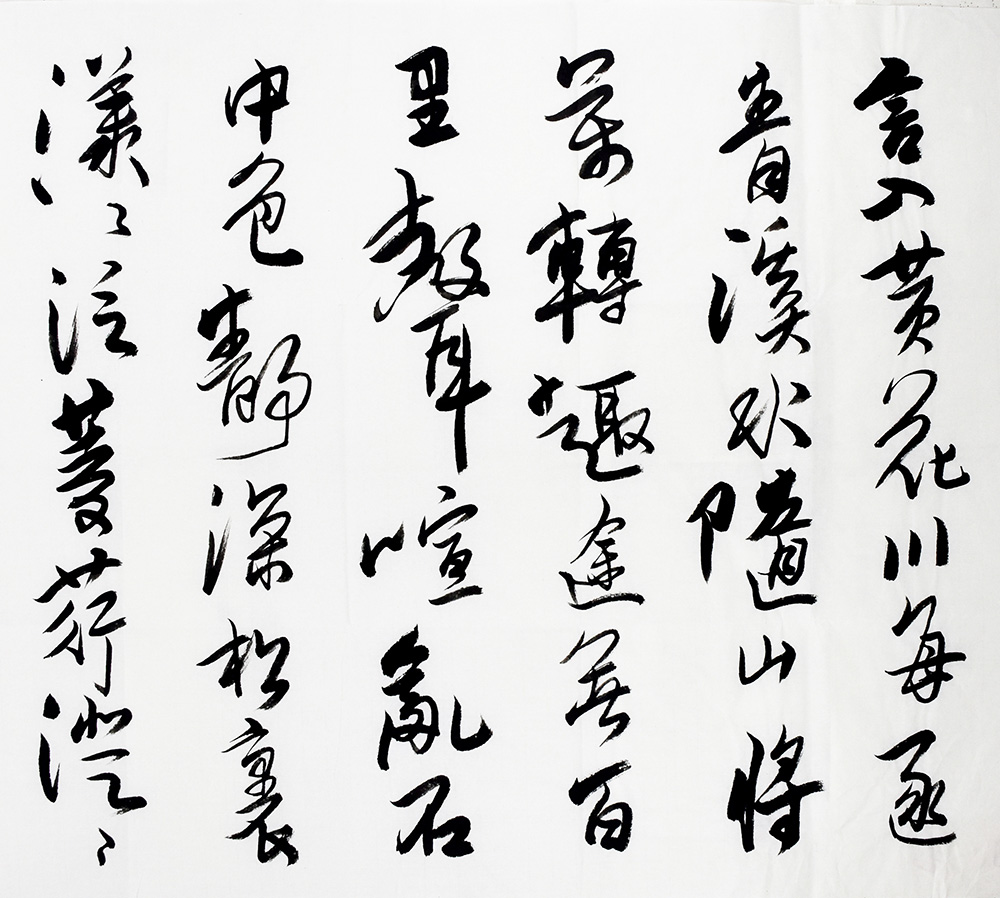 言入黃花川每逐
青溪水隨山將
萬轉趣途無百
里聲喧亂石
中色靜深松裏
漾〻泛菱荇澄〻